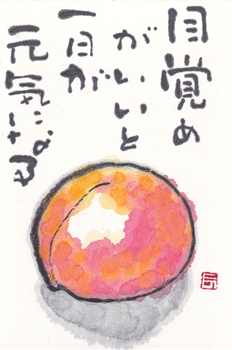 目覚め
がいいと
一日が
元気になる